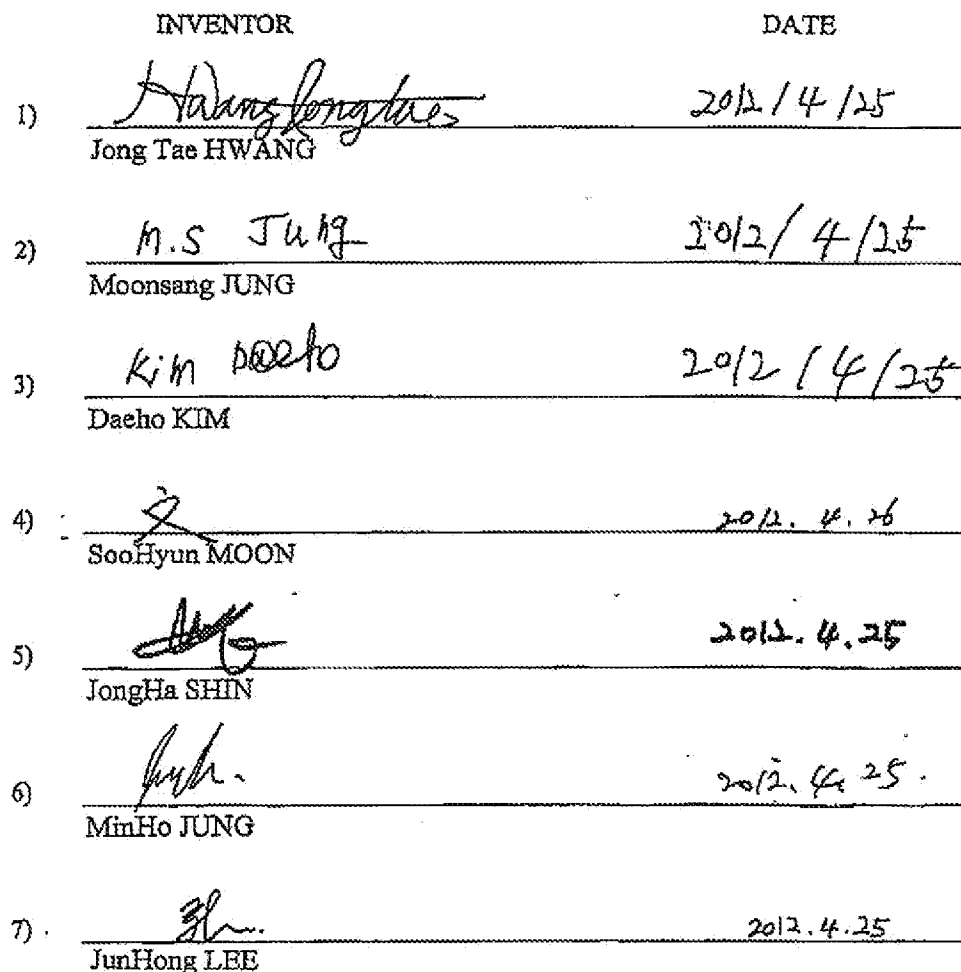 INVENTOR DATE
1) Hwang Jongtae 2012/4/25
Jong Tae HWANG
2) M.S Jung 2012/4/25
Moonsang JUNG
3) Kim Daeho 2012/4/25
Daeho KIM
4) 2012. 4. 26
SooHyun MOON
5) 2012. 4. 25
JongHa SHIN
6) 2012. 4. 25.
MinHo JUNG
7) 2012. 4. 25
JunHong LEE